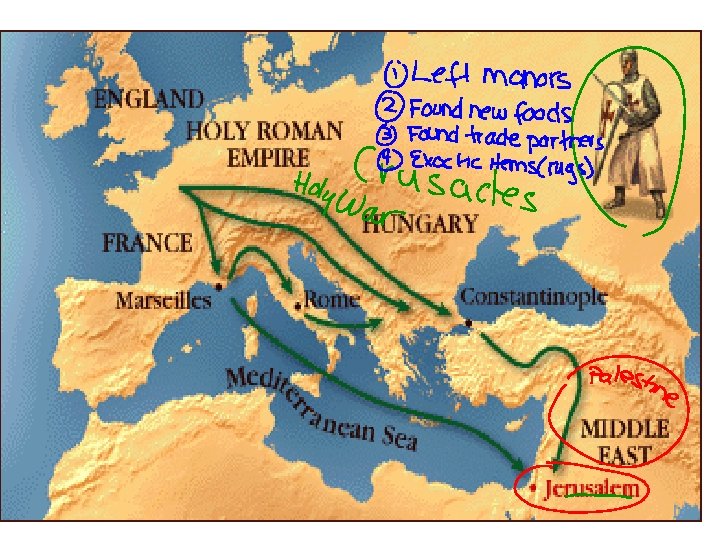 ① Left manors
② Found new foods
③ Found trade partners
④ Exoctic items (rugs)
ENGLAND
HOLY ROMAN
EMPIRE
Crusades
Holy War
HUNGARY
FRANCE
Marseilles
Rome
Constantinople
Mediterranean Sea
Palestine
MIDDLE
EAST
Jerusalem